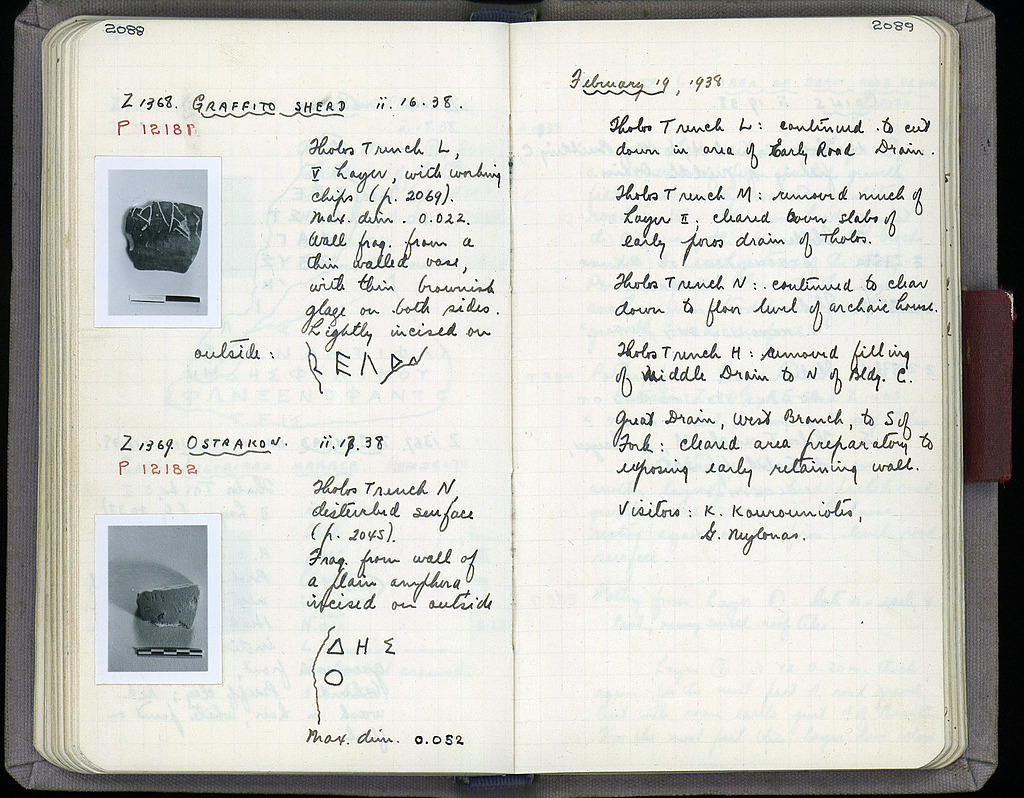 2088
Z 1368. GRAFFITO SHERD ii. 16. 38.
P 12181
Tholos Trench L,
V Layer, with working
chips (p. 2069).
Max. dim. 0.022.
Wall frag. from a
thin walled vase,
with thin brownish
glaze on both sides.
Lightly incised on
outside:
Z 1369. OSTRAKON. ii. 17. 38
P 12182
Tholos Trench N,
disturbed surface
(p. 2045).
Frag. from wall of
a plain amphora,
incised on outside
Δ Η Σ
Ο
Max. dim. 0.052
2089
February 19, 1938
Tholos Trench L: continued to cut
down in area of Early Road Drain.
Tholos Trench M: removed much of
Layer II, cleared cover slabs of
early poros drain of Tholos.
Tholos Trench N: continued to clear
down to floor level of archaic house.
Tholos Trench H: removed filling
of Middle Drain to N of Bldg. C.
Great Drain, West Branch, to S of
Fork: cleared area preparatory to
exposing early retaining wall.
Visitors: K. Kourouniotis,
G. Mylonas.